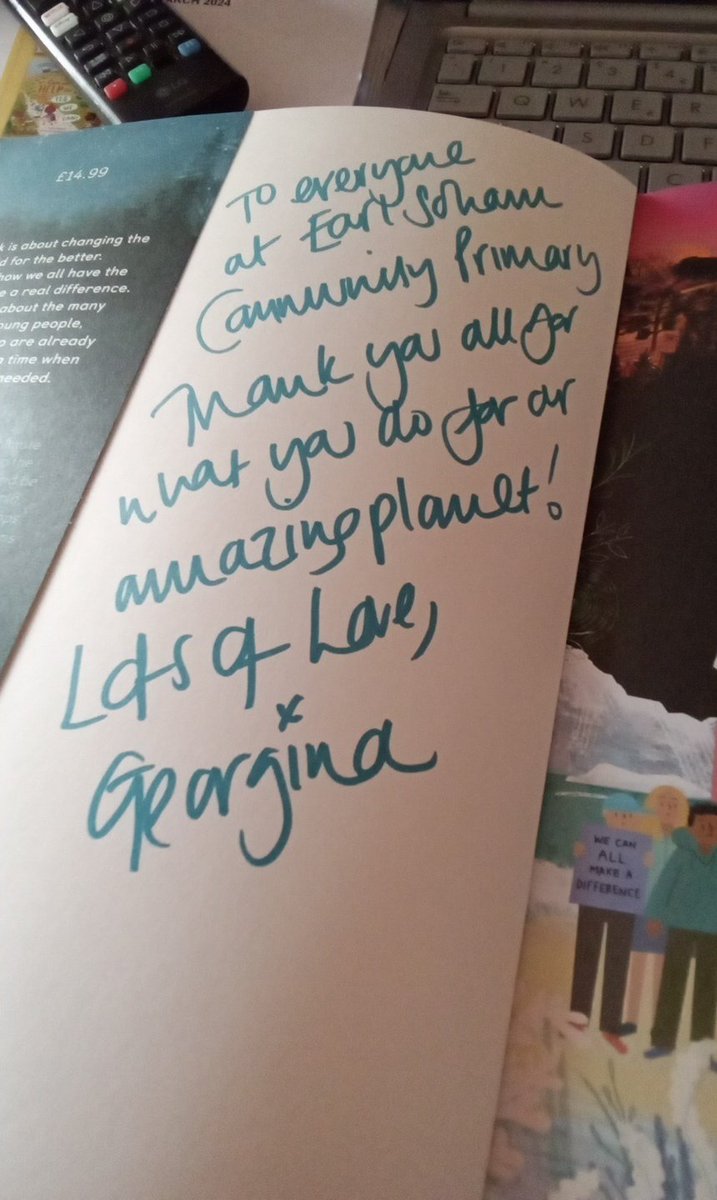 MARCH 2024
LG
Q W E R
S D F
C
£14.99
k is about changing the
d for the better.
how we all have the
e a real difference.
about the many
oung people,
o are already
n time when
needed.
To everyone
at Earl Soham
Community Primary
Thank you all for
what you do for our
amazing planet!
Lots of Love,
x
Georgina
WE CAN
ALL
MAKE A
DIFFERENCE